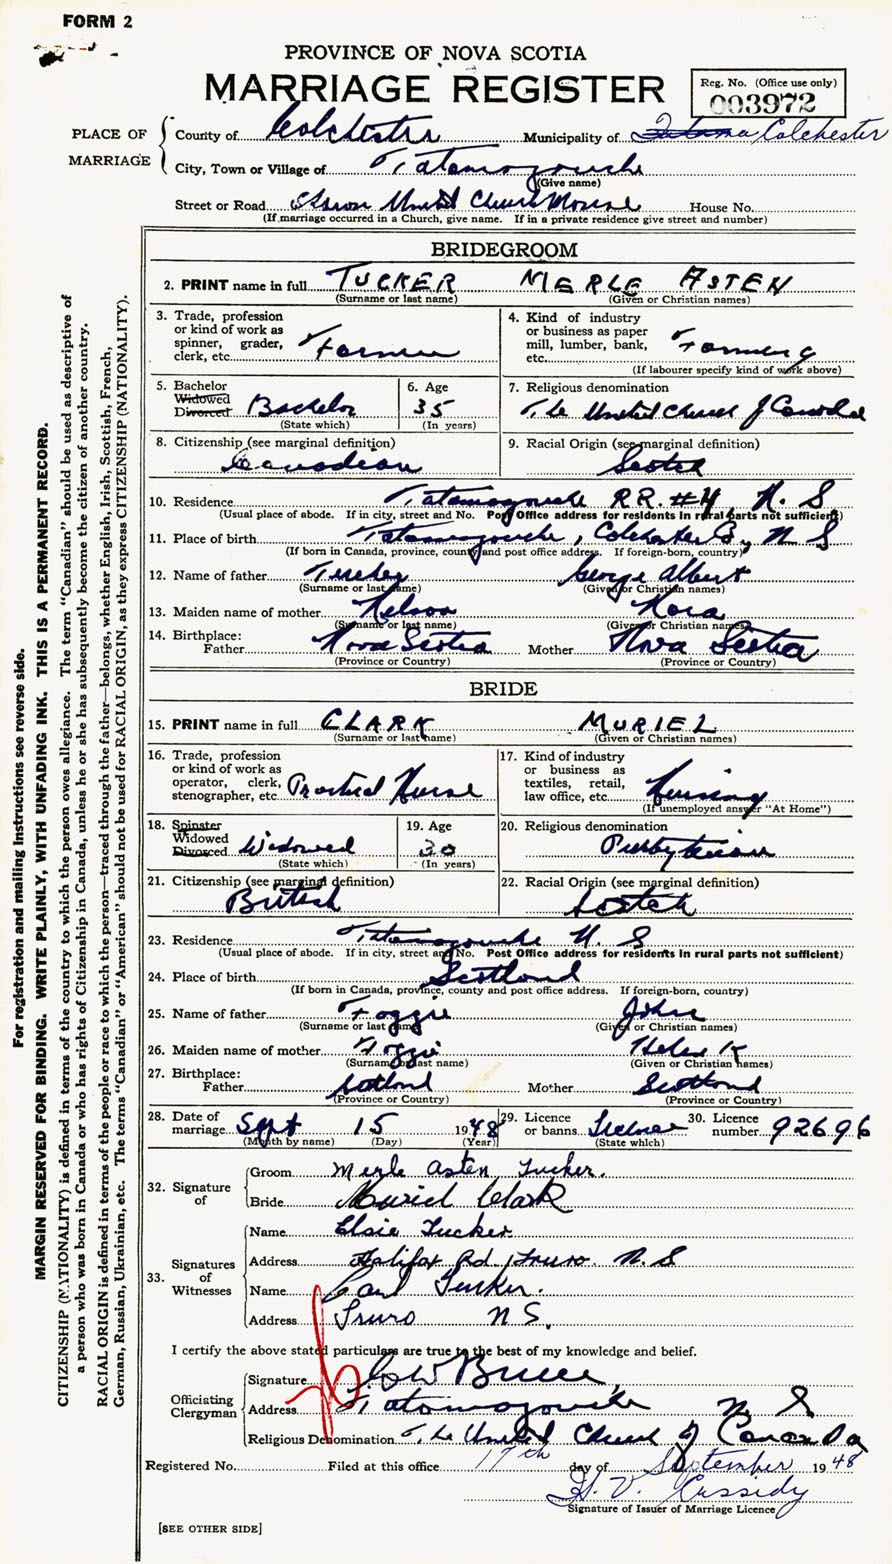 FORM 2
PROVINCE OF NOVA SCOTIA
MARRIAGE REGISTER
Reg. No. (Office use only)
003972
PLACE OF MARRIAGE
County of Colchester Municipality of Colchester
City, Town or Village of Tatamagouche
(Give name)
Street or Road Sharon United Church Manse House No.
(If marriage occurred in a Church, give name. If in a private residence give street and number)
BRIDEGROOM
2. PRINT name in full TUCKER MERLE ASTEN
(Surname or last name) (Given or Christian names)
3. Trade, profession or kind of work as spinner, grader, clerk, etc. Farmer
4. Kind of industry or business as paper mill, lumber, bank, etc. Farming
(If labourer specify kind of work above)
5. Bachelor Widowed Divorced Bachelor
(State which)
6. Age 35
(In years)
7. Religious denomination
The United Church of Canada
8. Citizenship (see marginal definition)
Canadian
9. Racial Origin (see marginal definition)
Scotch
10. Residence Tatamagouche RR. #4 N. S
(Usual place of abode. If in city, street and No. Post Office address for residents in rural parts not sufficient)
11. Place of birth Tatamagouche, Colchester Co, N S
(If born in Canada, province, county and post office address. If foreign-born, country)
12. Name of father Tucker George Albert
(Surname or last name) (Given or Christian names)
13. Maiden name of mother Nelson Nora
(Surname or last name) (Given or Christian names)
14. Birthplace:
Father Nova Scotia Mother Nova Scotia
(Province or Country) (Province or Country)
BRIDE
15. PRINT name in full CLARK MURIEL
(Surname or last name) (Given or Christian names)
16. Trade, profession or kind of work as operator, clerk, stenographer, etc. Practical Nurse
17. Kind of industry or business as textiles, retail, law office, etc. Nursing
(If unemployed answer "At Home")
18. Spinster Widowed Divorced Widowed
(State which)
19. Age 30
(In years)
20. Religious denomination
Presbyterian
21. Citizenship (see marginal definition)
British
22. Racial Origin (see marginal definition)
Scotch
23. Residence Tatamagouche N. S
(Usual place of abode. If in city, street and No. Post Office address for residents in rural parts not sufficient)
24. Place of birth Scotland
(If born in Canada, province, county and post office address. If foreign-born, country)
25. Name of father Foggie John
(Surname or last name) (Given or Christian names)
26. Maiden name of mother Foggie Helen K
(Surname or last name) (Given or Christian names)
27. Birthplace:
Father Scotland Mother Scotland
(Province or Country) (Province or Country)
28. Date of marriage Sept 15 1948
(Month by name) (Day) (Year)
29. Licence or banns License
(State which)
30. Licence number 92696
32. Signature of
Groom Merle Asten Tucker.
Bride Muriel Clark
33. Signatures of Witnesses
Name Elsie Tucker
Address Halifax Rd, Truro N. S
Name Carl Tucker.
Address Truro N S.
I certify the above stated particulars are true to the best of my knowledge and belief.
Officiating Clergyman
Signature Bruce
Address Tatamagouche N. S.
Religious Denomination The United Church of Canada
Registered No. Filed at this office 17th day of September 1948
H. V. Cassidy
Signature of Issuer of Marriage Licence
[SEE OTHER SIDE]
For registration and mailing instructions see reverse side.
MARGIN RESERVED FOR BINDING. WRITE PLAINLY, WITH UNFADING INK. THIS IS A PERMANENT RECORD.
CITIZENSHIP (NATIONALITY) is defined in terms of the country to which the person owes allegiance. The term "Canadian" should be used as descriptive of
a person who was born in Canada or who has rights of Citizenship in Canada, unless he or she has subsequently become the citizen of another country.
RACIAL ORIGIN is defined in terms of the people or race to which the person—traced through the father—belongs, whether English, Irish, Scottish, French,
German, Russian, Ukrainian, etc. The terms "Canadian" or "American" should not be used for RACIAL ORIGIN, as they express CITIZENSHIP (NATIONALITY).